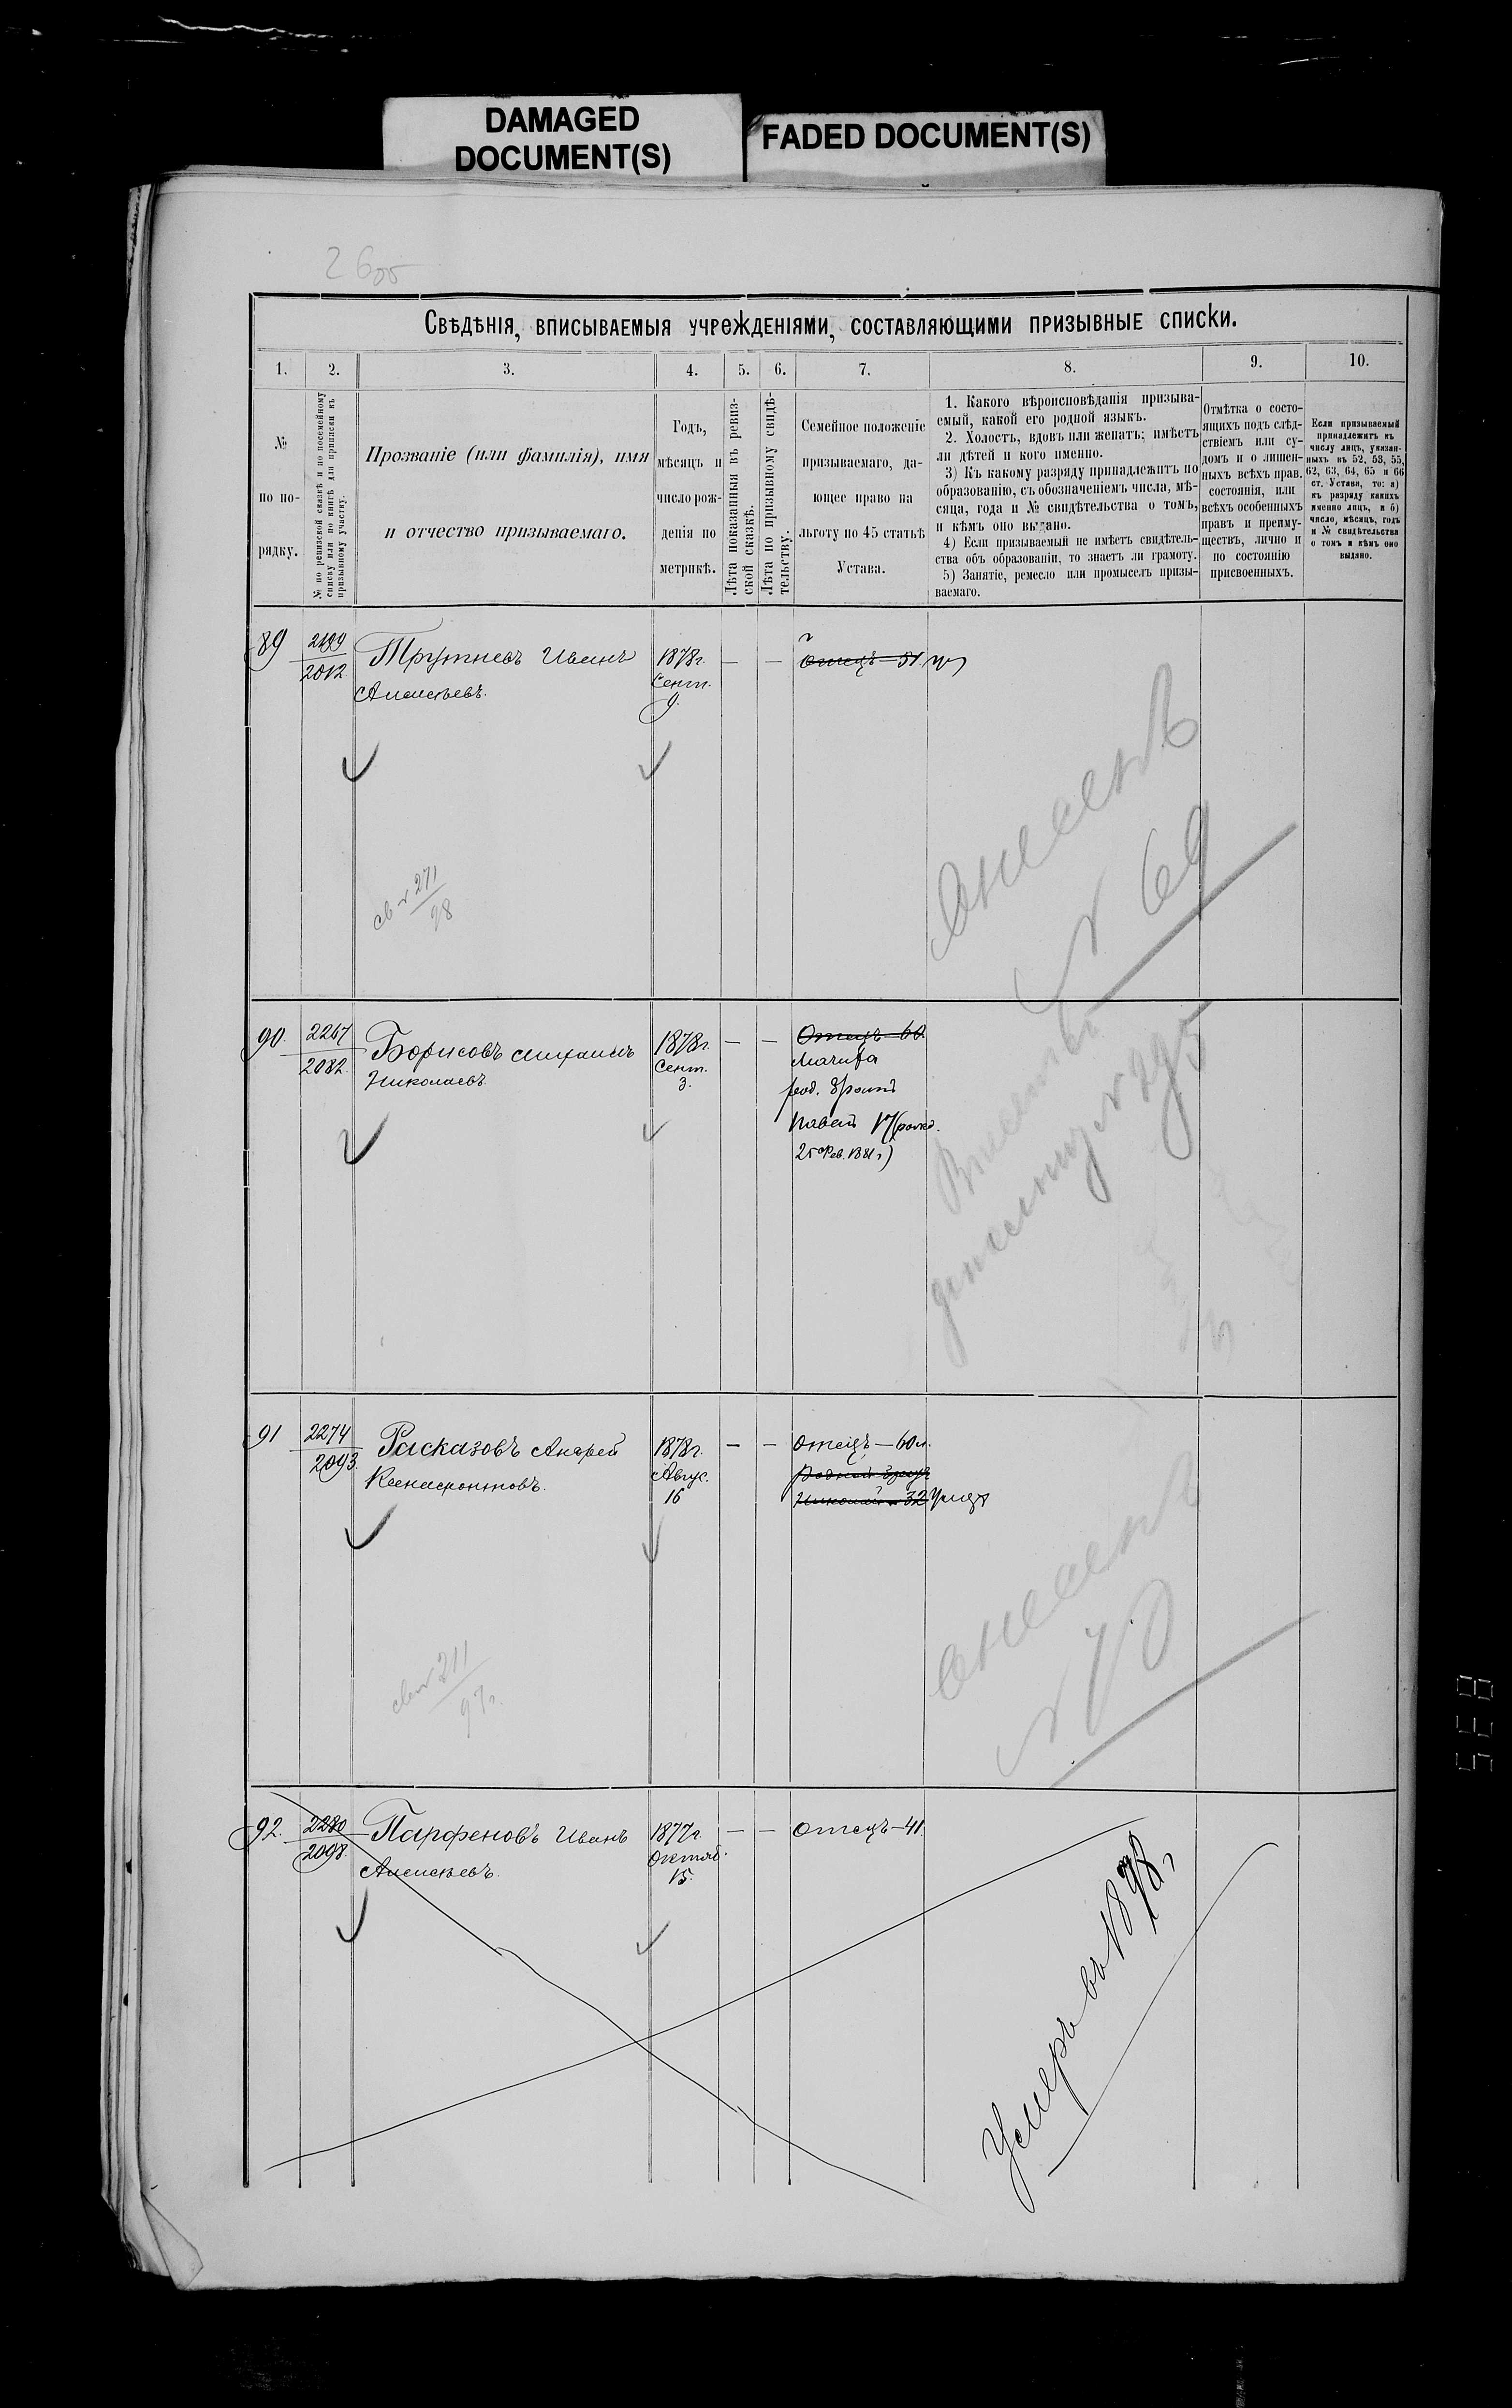 DAMAGED
DOCUMENT(S)
FADED DOCUMENT(S)
Свѣдѣнія, вписываемыя учрежденіями, составляющими призывные списки.
1.
2.
3.
4.
5.
6.
7.
8.
9.
10.
№
по по-
рядку.
№ по ревизской сказкѣ и по посемейному
списку или по книгѣ для приписки къ
призывному участку.
Прозваніе (или фамилія), имя
и отчество призываемаго.
Годъ,
мѣсяцъ и
число рож-
денія по
метрикѣ.
Лѣта показанныя въ ревиз-
ской сказкѣ.
Лѣта по призывному свидѣ-
тельству.
Семейное положеніе
призываемаго, да-
ющее право на
льготу по 45 статьѣ
Устава.
1. Какого вѣроисповѣданія призыва-
емый, какой его родной языкъ.
2. Холостъ, вдовъ или женатъ; имѣетъ
ли дѣтей и кого именно.
3) Къ какому разряду принадлежитъ по
образованію, съ обозначеніемъ числа, мѣ-
сяца, года и № свидѣтельства о томъ,
и кѣмъ оно выдано.
4) Если призываемый не имѣетъ свидѣтель-
ства объ образованіи, то знаетъ ли грамоту.
5) Занятіе, ремесло или промыселъ призы-
ваемаго.
Отмѣтка о состо-
ящихъ подъ слѣд-
ствіемъ или су-
домъ и о лишен-
ныхъ всѣхъ прав.
состоянія, или
всѣхъ особенныхъ
правъ и преиму-
ществъ, лично и
по состоянію
присвоенныхъ.
Если призываемый
принадлежитъ къ
числу лицъ, указан-
ныхъ въ 52, 53, 55,
62, 63, 64, 65 и 66
ст. Устава, то: а)
къ разряду какихъ
именно лицъ, и б)
число, мѣсяцъ, годъ
и № свидѣтельства
о томъ и кѣмъ оно
выдано.
89
2199
2012
Трутневъ Иванъ
Алексѣевъ.
1878г.
Сент.
9.
—
—
Отецъ—51
271
98
№ 69
90.
2267
2082.
Борисовъ Михаилъ
Николаевъ
1878г.
Сент.
3.
—
—
Отецъ—60.
род. братъ
Павелъ 17
25 Фев. 1881г)
91
2274
2093.
Расказовъ Андрей
Ксенофонтовъ.
1878г.
Авгус.
16
—
—
Отецъ—60л.
Родной братъ
Николай 32 Умеръ
211
97г.
№ 70
92.
2280
2098.
Парфеновъ Иванъ
Алексѣевъ.
1877г.
Октяб.
15.
—
—
Отецъ—41.
Умеръ въ 1878г
835